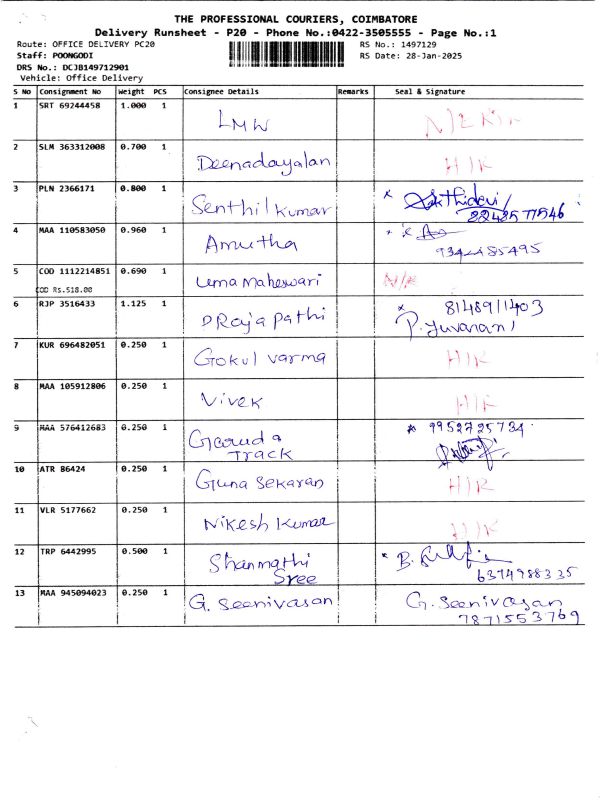 THE PROFESSIONAL COURIERS, COIMBATORE
Delivery Runsheet - P20 - Phone No.:0422-3505555 - Page No.:1
Route: OFFICE DELIVERY PC20 RS No.: 1497129
Staff: POONGODI RS Date: 28-Jan-2025
DRS No.: DCJB149712901
Vehicle: Office Delivery
S No Consignment No Weight PCS Consignee Details Remarks Seal & Signature
1 SRT 69244458 1.000 1 LMW
2 SLM 363312008 0.700 1 Deenadayalan H/K
3 PLN 2366171 0.800 1 Senthil Kumar
4 MAA 110583050 0.960 1 Amutha
5 COD 1112214851 0.690 1 Uma maheswari N/K
COD RS.518.00
6 RJP 3516433 1.125 1 D Raja pathi 8148911403
7 KUR 696482051 0.250 1 Gokul varma H/K
8 MAA 105912806 0.250 1 Vivek H/K
9 MAA 576412683 0.250 1 Garuda 9952725734
TRACK
10 ATR 86424 0.250 1 Guna Sekaran H/K
11 VLR 5177662 0.250 1 Nikesh Kumar H/K
12 TRP 6442995 0.500 1 Shanmathi
Sree 6374988335
13 MAA 945094023 0.250 1 G. Seenivasan G. Seenivasan
7871553769